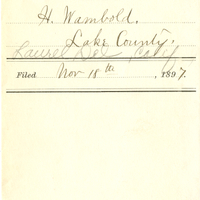 H. Wambold.
Lake County.
Laurel Dell, Calif
Filed Nov 18th, 1897.